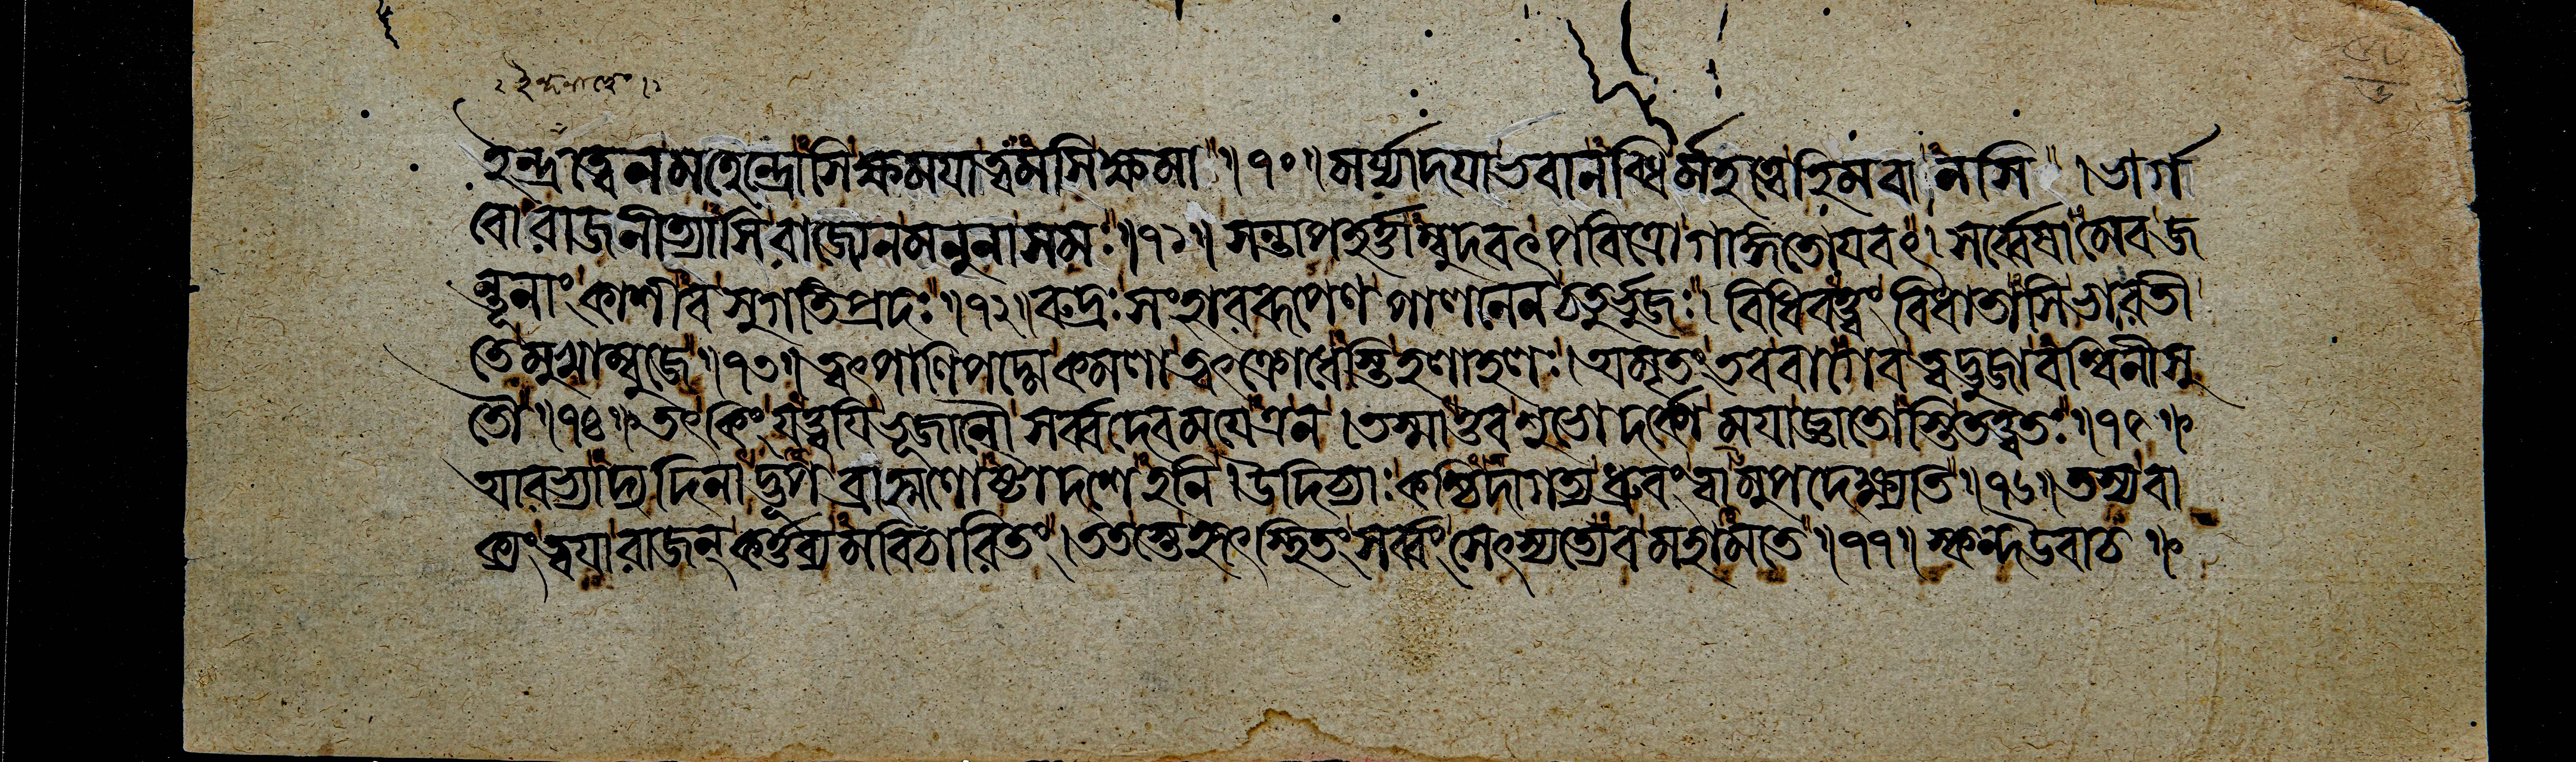 ইন্দ্রত্বেনমহেন্দ্রোসিক্ষময়াত্বমসিক্ষমা ॥১০॥ মর্য্যাদয়াভবানব্ধির্মহত্ত্বেহিমবানসি । ভার্গ
বোরাজনীত্যাসিরাজ্যেনমনুনাসমঃ ॥১১॥ সন্তাপহর্ত্তাম্বুদবৎপবিত্রোগাঙ্গতোয়বৎ । সর্ব্বেষামেবজ
ন্তূনাং কাশীবসুগতিপ্রদঃ ॥১২॥ রুদ্রঃ সংহাররূপেণপালনেনচতুর্ভুজঃ । বিধিবত্ত্বং বিধাতাসিভারতী
তেমুখাম্বুজে ॥১৩॥ ত্বৎপাণিপদ্মেকমলাত্বৎক্রোধেস্তিহলাহলঃ । অমৃতং তববাগেবত্বদ্ভুজাবশ্বিনীসু
তৌ ॥১৪॥ তৎকিং যত্ত্বয়িভূজানৌসর্ব্বদেবময়েএন । তস্মাত্তবশুভোদর্কোময়াজ্ঞাতোস্তিতত্ত্বতঃ ॥১৫॥
আরভ্যাদ্যদিনাদ্ভূপব্রাহ্মণোষ্টাদশেহনি । উদিচ্যঃ কশ্চিদাগত্যধ্রুবং ত্বামুপদেক্ষ্যতি ॥১৬॥ তস্যবা
ক্যং ত্বয়ারাজন্ কর্ত্তব্যমবিচারিতং । ততস্তেহৃৎস্থিতং সর্ব্বং সেৎস্যত্যেবমহামতে ॥১৭॥ স্কন্দউবাচ ॥